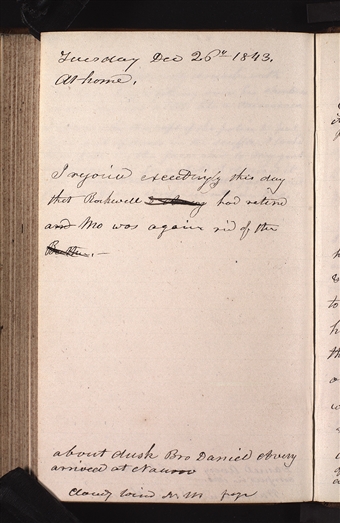 Tuesday Dec 26th 1843.
At home.
I rejoice exceedingly this day
that Rockwell had retired
and Mo was again rid of the
about dusk Bro Daniel Avery
arrived at Nauvoo
Cloudy wind